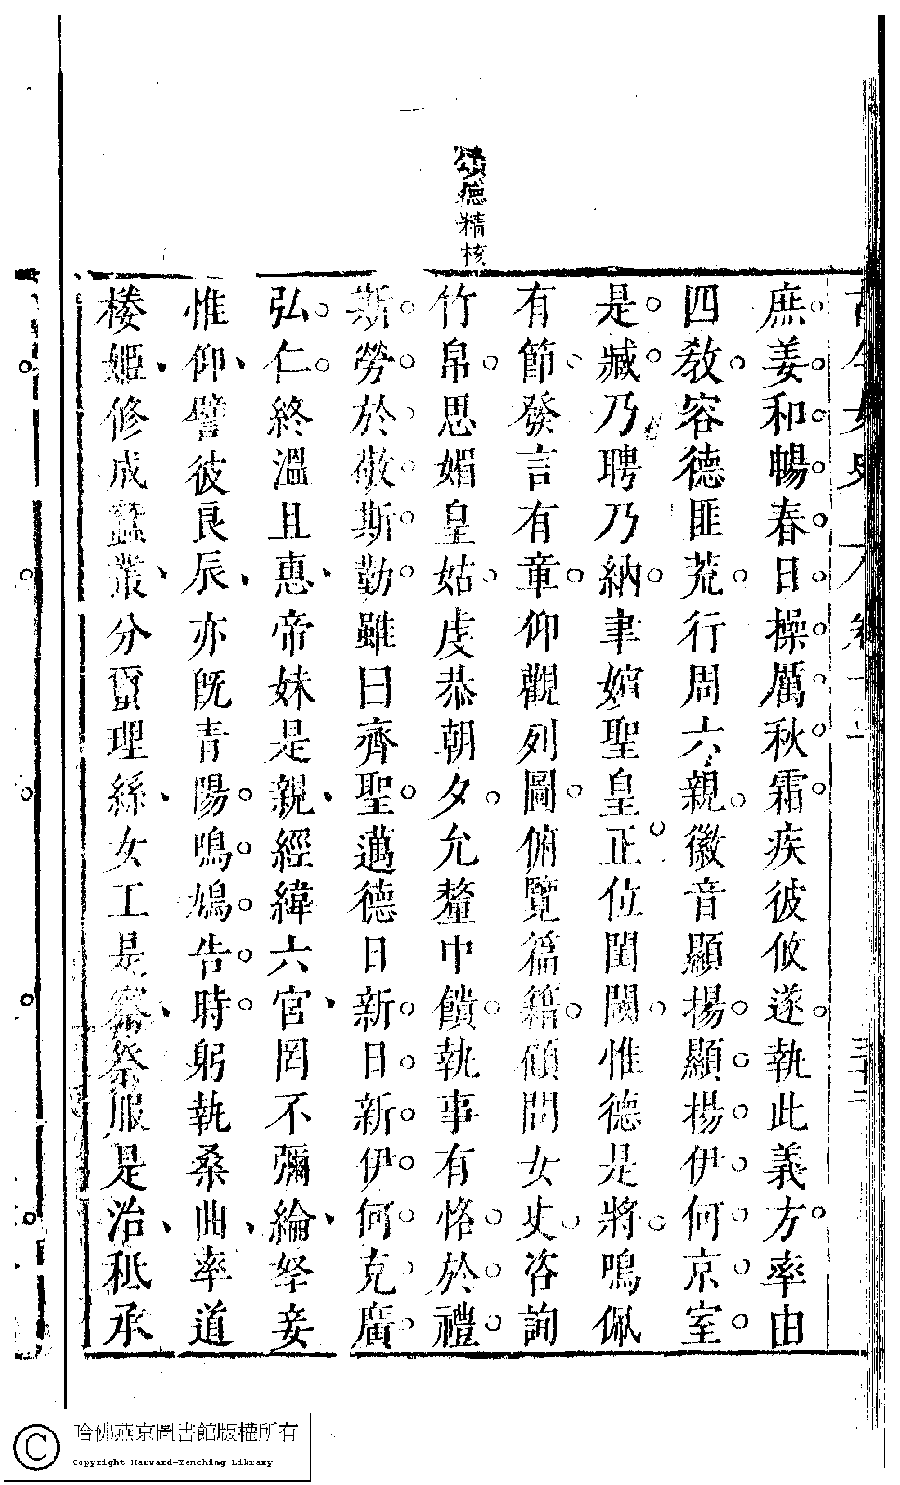 頌德精核
庶姜和暢春日操厲秋霜疾彼攸遂執此義方率由
四教容德匪荒行周六親徽音顯揚顯揚伊何京室
是臧乃聘乃納聿嬪聖皇正位閨閾惟德是將鳴佩
有節發言有章仰觀列圖俯覽篇籍顧問女史咨詢
竹帛思媚皇姑虔恭朝夕允釐中饋執事有恪於禮
斯勞於敬斯勤雖曰齊聖邁德日新日新伊何克廣
弘仁終溫且惠帝妹是親經緯六宮罔不彌綸羣妾
惟仰譬彼良辰亦旣青陽鳴鳩告時躬執桑曲率道
媵姬修成蠶蔟分繭理絲女工是察祭服是治秪承
哈佛燕京圖書館版權所有
Copyright Harvard-Yenching Library